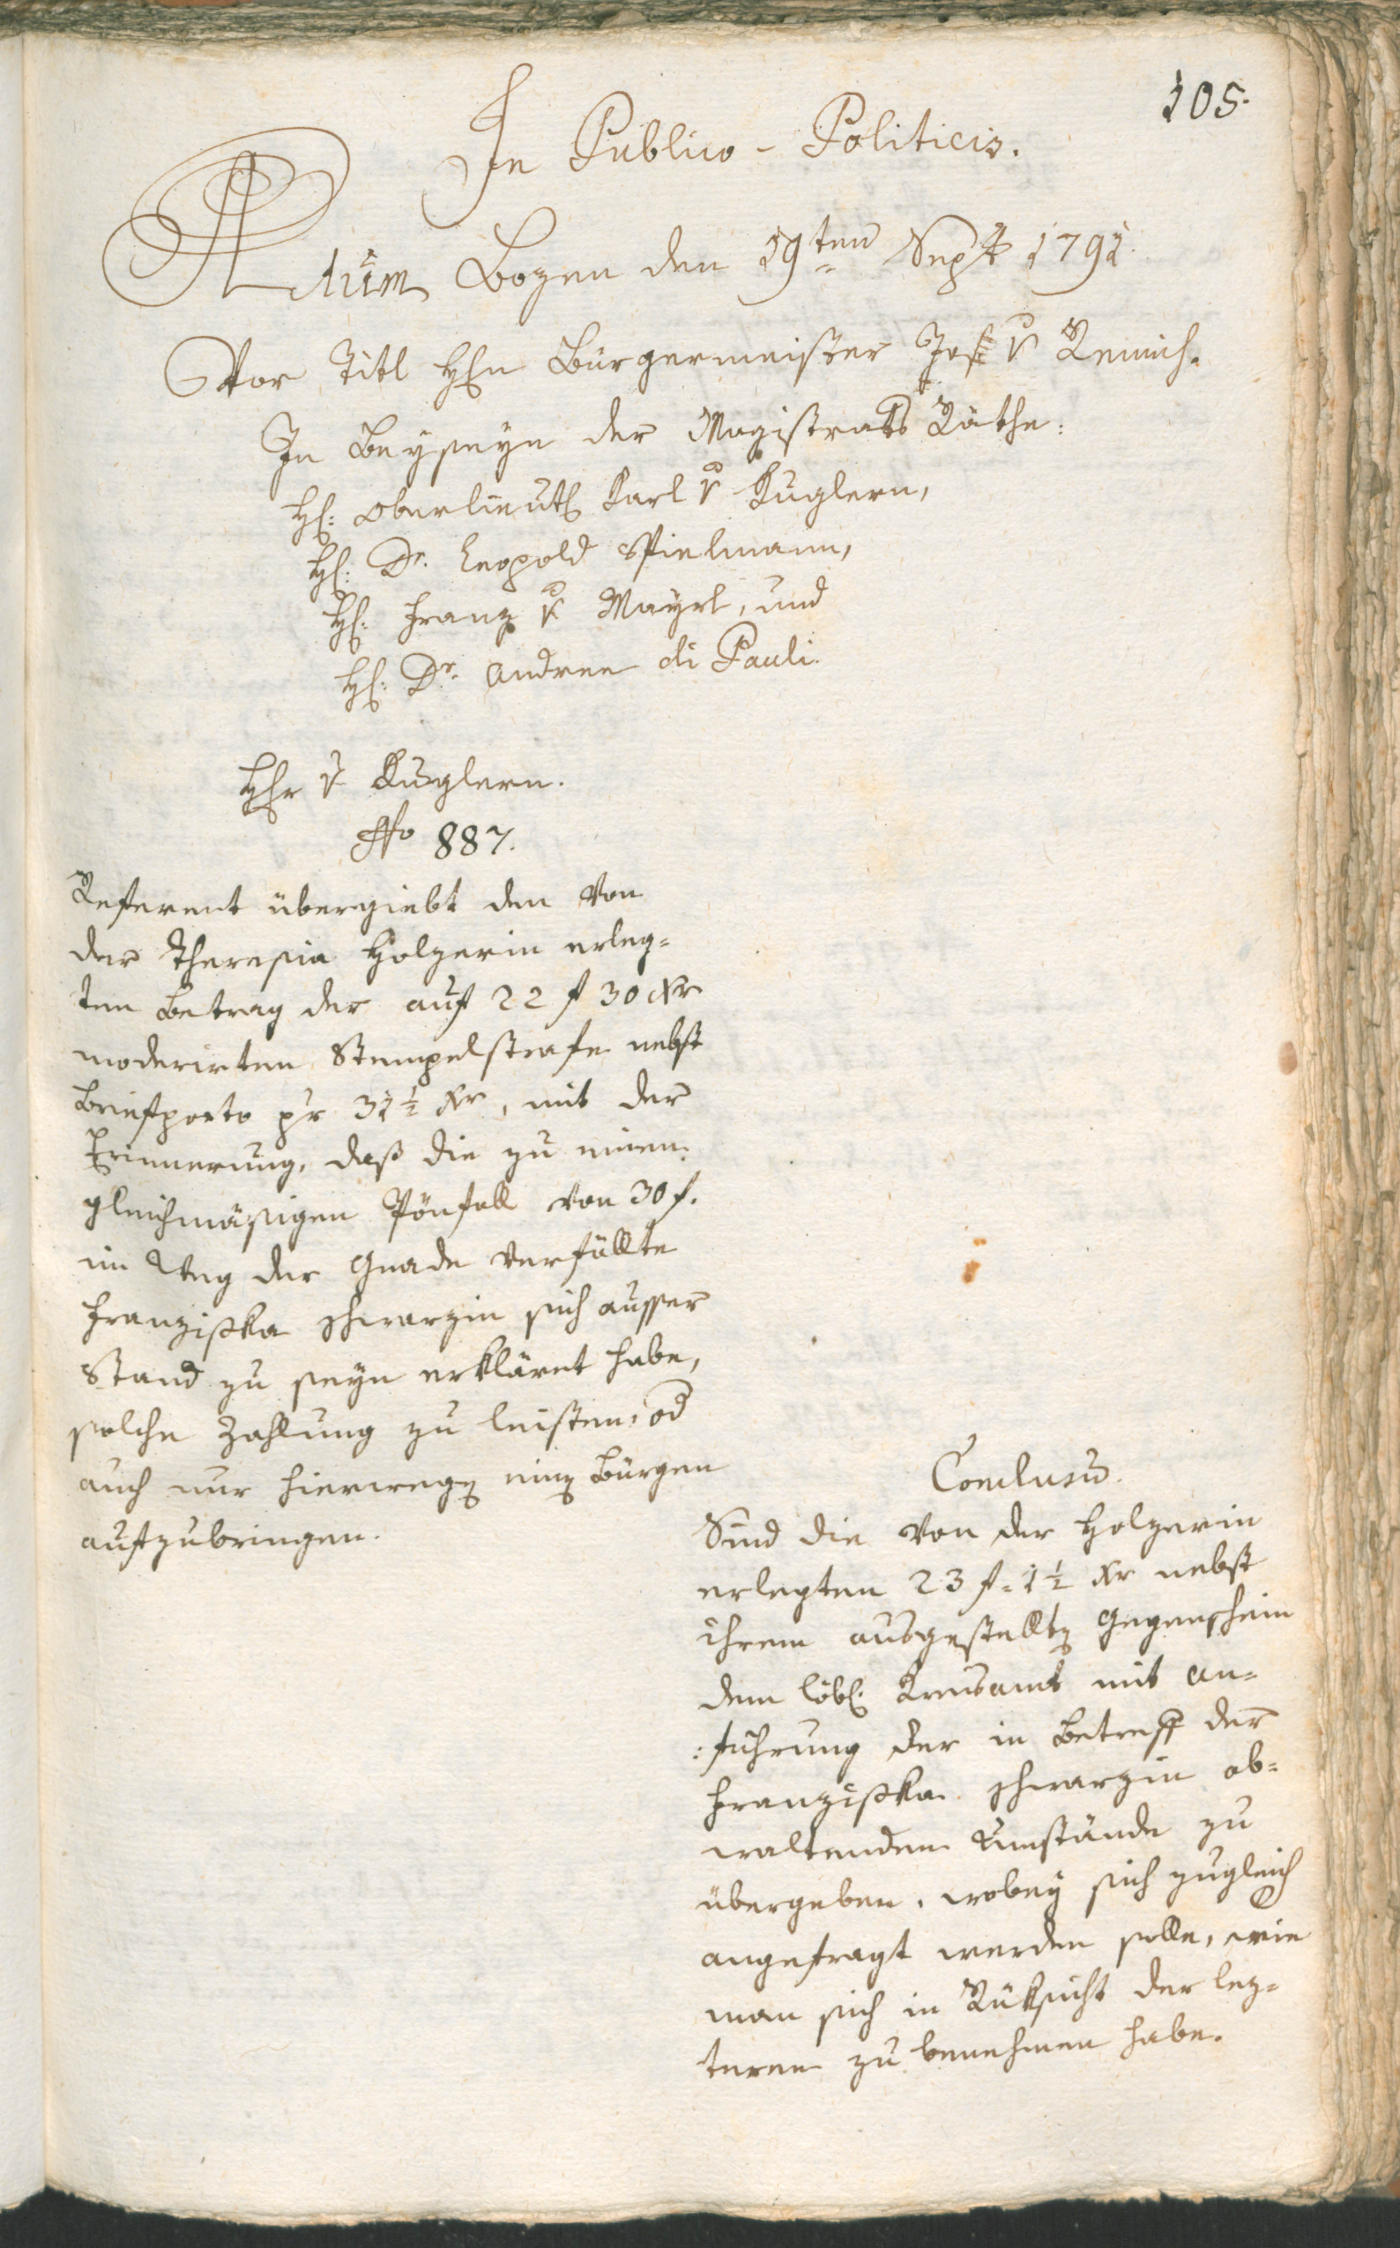 105.
In Publico-Politicis.
Actum Bozen den 19ten Sept 1791.
Vor Titl Hhn Bürgermeister Jos: v Remich.
In Beyseyn der Magistrats Räthe:
H: Oberlieut: Karl v Kuglern,
H: Dr. Leopold Spielmann,
H: Franz v Mayrl, und
H: Dr. Andree di Pauli.
Hhr v Kuglern.
No 887.
Referent übergiebt den von
der Theresia Holzerin erleg=
ten Betrag der auf 22 f 30 xr
moderirten Stempelstrafe nebst
Briefporto pr 31½ xr, mit der
Erinnerung, daß die zu einem
gleichmäsigen Pönfall von 30 f.
im Weg der Gnade verfällte
Franziska Schwarzin sich ausser
Stand zu seyn erkläret habe,
solche Zahlung zu leisten, od
auch nur hierweg einen Bürgen
aufzubringen.
Conclusum.
Sind die von der Holzerin
erlegten 23 f = 1½ xr nebst
ihrem ausgestellten Gegenschein
dem löbl: Kreisamt mit An=
:führung der in Betreff der
Franziska Schwarzin ob=
waltenden Umstände zu
übergeben, wobey sich zugleich
angefragt werden solle, wie
man sich in Rüksicht der lez=
teren zu benehmen habe.